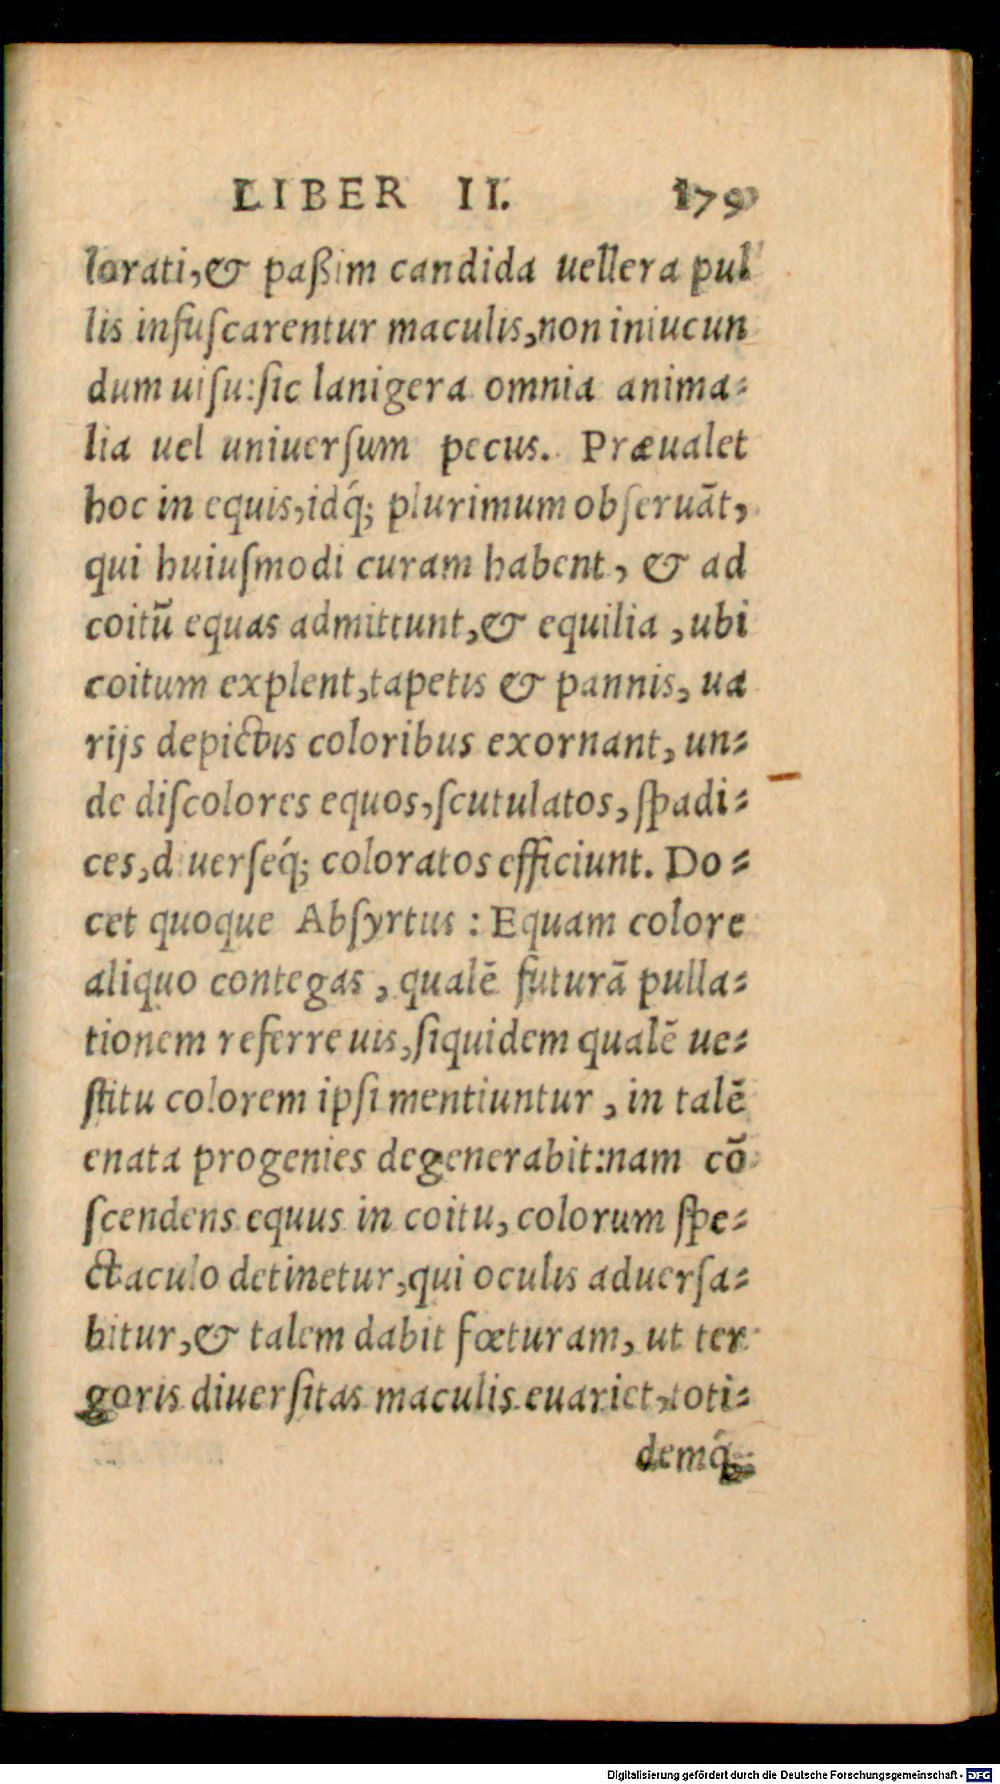 LIBER II. 179
lorati,& paßim candida uellera pul
lis infuſcarentur maculis,non iniucun
dum uiſu:ſic lanigera omnia anima-
lia uel uniuerſum pecus. Præualet
hoc in equis,idq́; plurimum obſeruãt,
qui huiuſmodi curam habent, & ad
coitũ equas admittunt,& equilia ,ubi
coitum explent,tapetis & pannis, ua
rijs depictis coloribus exornant, un-
de diſcolores equos,ſcutulatos, ſpadi-
ces,diuerſeq́; coloratos efficiunt. Do-
cet quoque Abſyrtus : Equam colore
aliquo contegas , qualẽ futurã pulla-
tionem referre uis,ſiquidem qualẽ ue-
ſtitu colorem ipſi mentiuntur , in talẽ
enata progenies degenerabit:nam cõ
ſcendens equus in coitu, colorum ſpe-
ctaculo detinetur,qui oculis aduerſa-
bitur,& talem dabit fœturam, ut ter
goris diuerſitas maculis euariet,toti-
demq́;
Digitalisierung gefördert durch die Deutsche Forschungsgemeinschaft - DFG